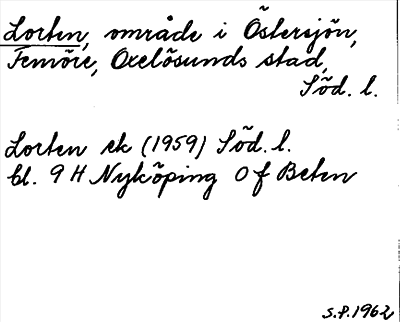 Lorten, område i Östersjön,
Femöre, Oxelösunds stad,
Söd. l.
Lorten ek (1959) Söd. l.
bl. 9 H Nyköping 0 f Beten
S.P. 1962